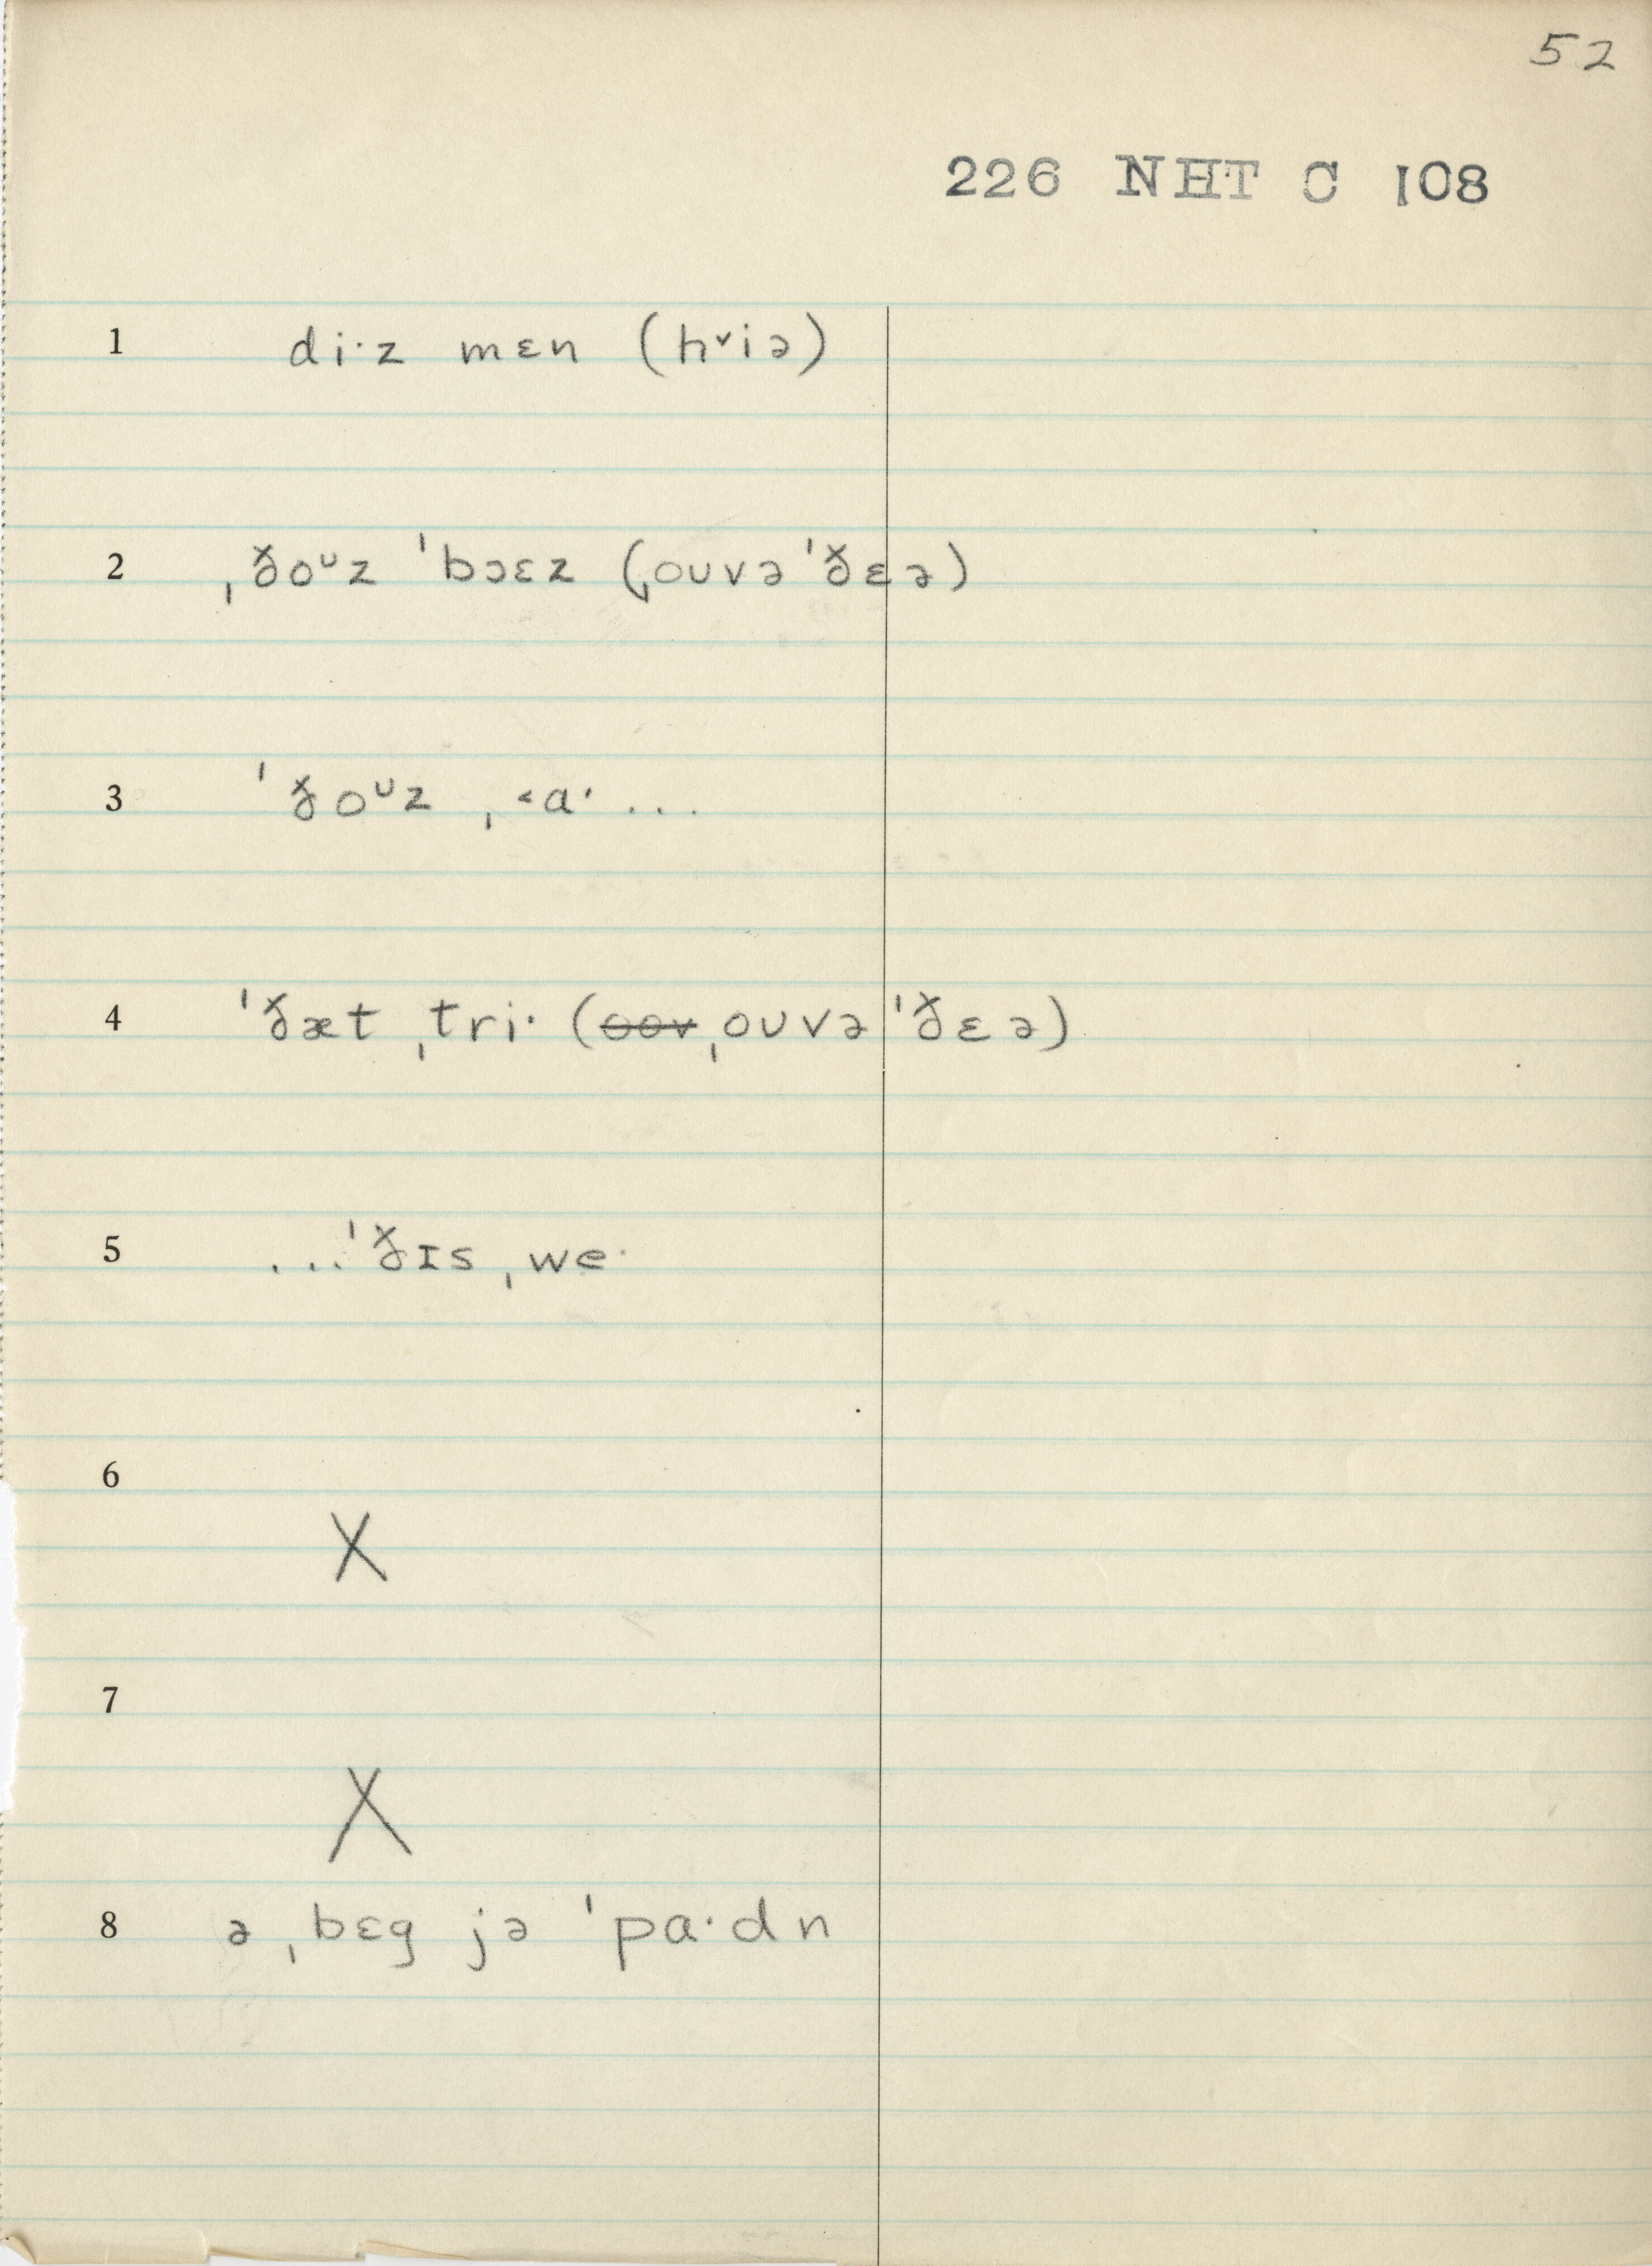 52
226 NHT C 108
1 di·z mɛn (hᵛiə)
2 ˌðoᶷz ˈbɔɛz (ˌoʊvəˈðɛə)
3 ˈðoᶷz ˌ˂a· ...
4 ˈðæt ˌtri· (o̶o̶v̶ ˌoʊvəˈðɛə)
5 ...ˈðɪs ˌwe·
6
X
7
X
8 ə ˌbɛg jə ˈpa·dn